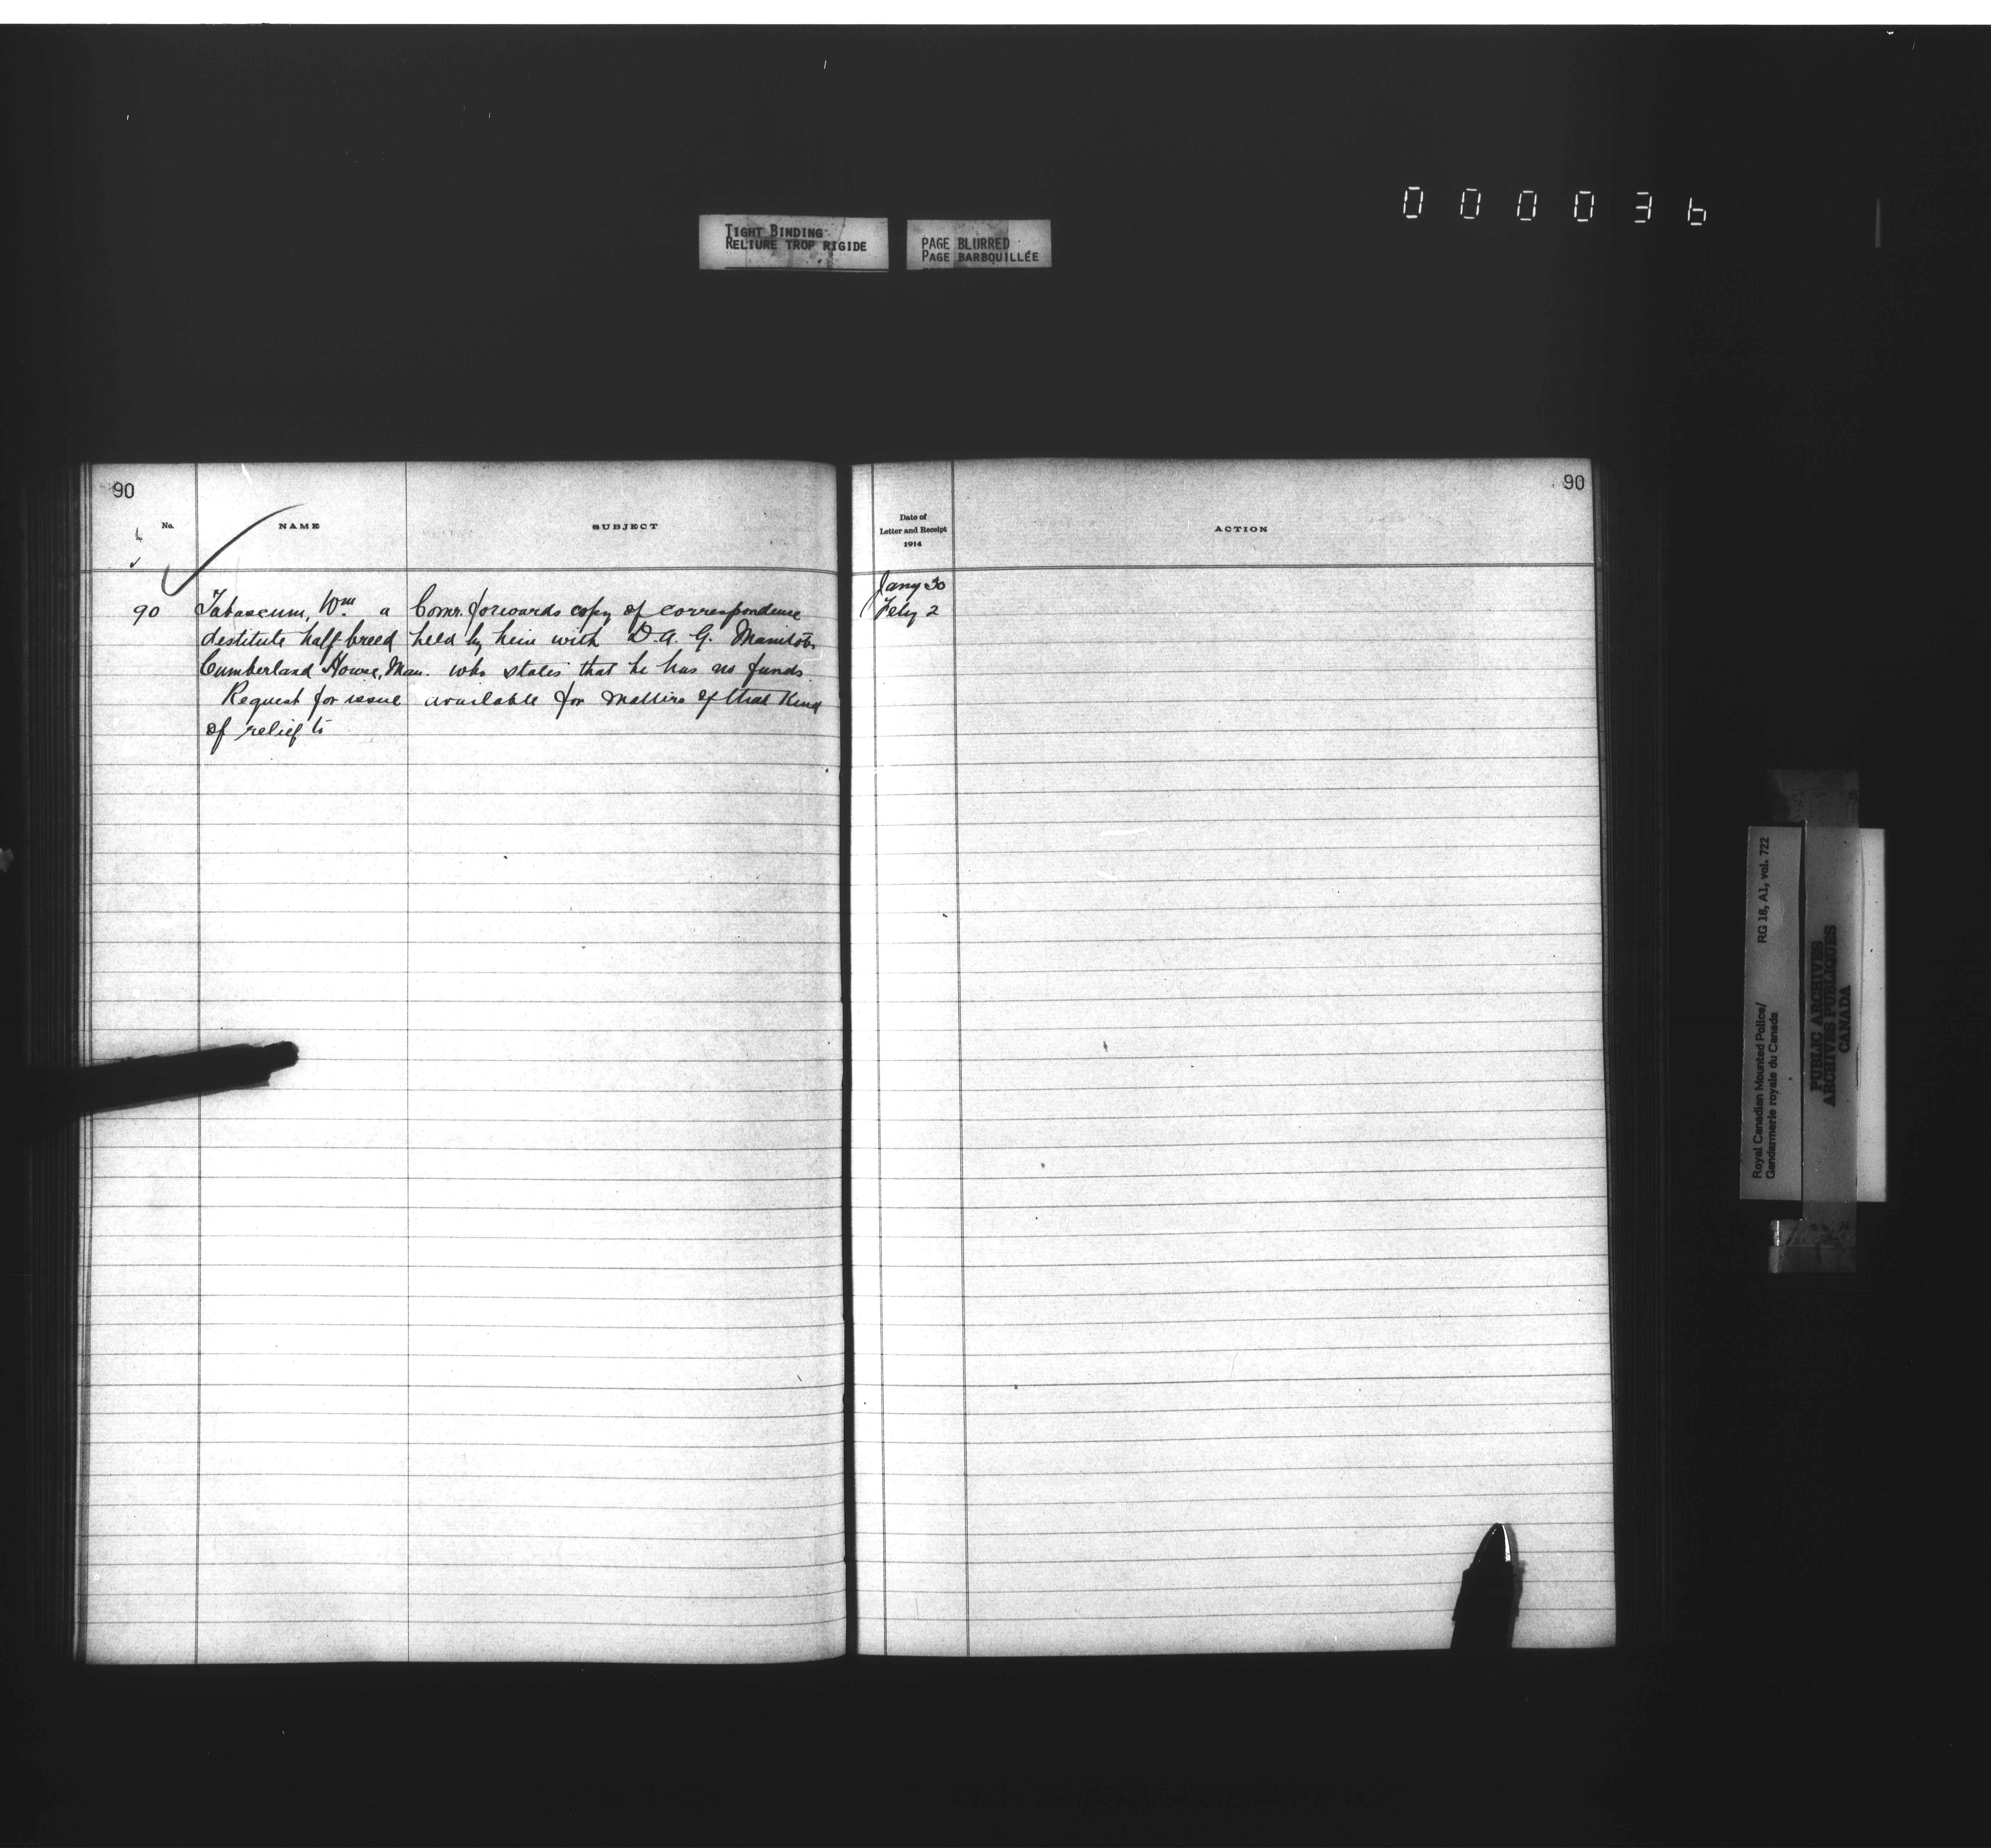 000036
TIGHT BINDING
RELIURE TROP RIGIDE
PAGE BLURRED
PAGE BARBOUILLÉE
90
No.
NAME
SUBJECT
90 Tabascum, Wm. a Comr. forwards copy of correspondence
destitute half breed held by him with D.A.G. Manitoba
Cumberland House, Man. who states that he has no funds.
Request for issue available for matters of that kind
of relief to
90
Date of
Letter and Receipt
1914
ACTION
Jany 30
Feby 2
Royal Canadian Mounted Police/ RG 18, A1, vol. 722
Gendarmerie royale du Canada
PUBLIC ARCHIVES
ARCHIVES PUBLIQUES
CANADA